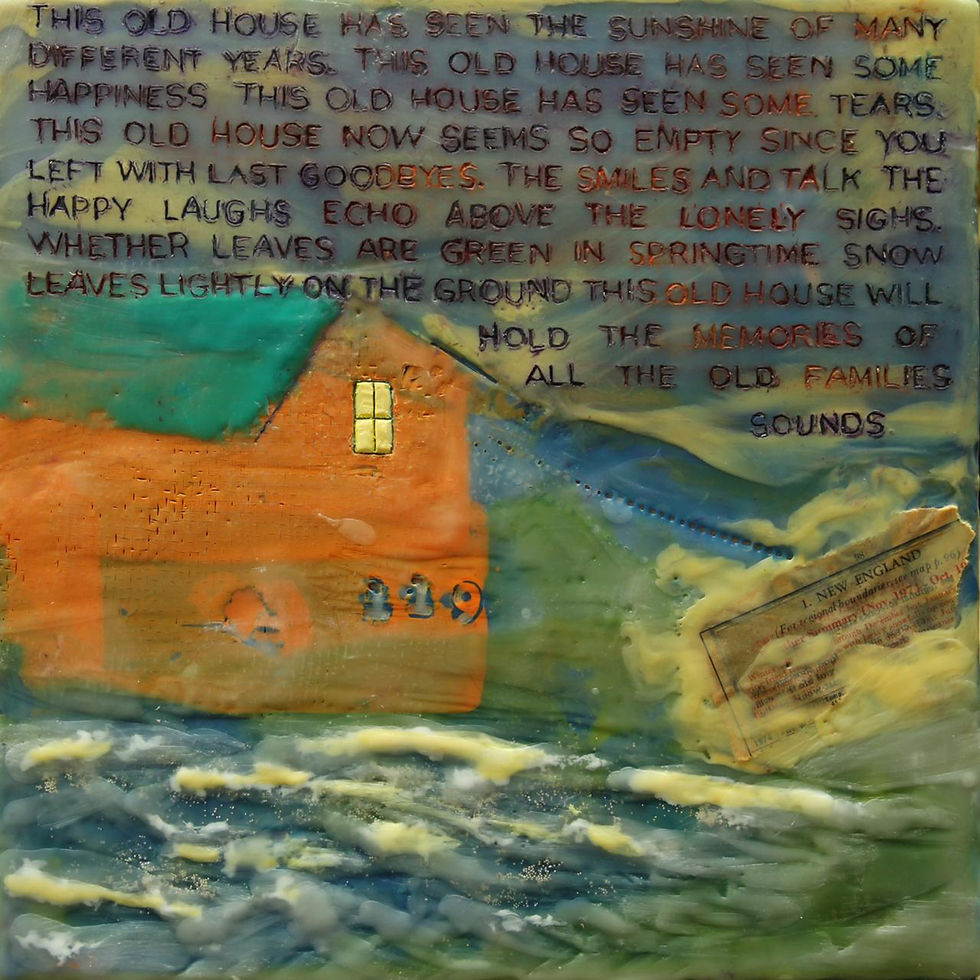 THIS OLD HOUSE HAS SEEN THE SUNSHINE OF MANY
DIFFERENT YEARS. THIS OLD HOUSE HAS SEEN SOME
HAPPINESS THIS OLD HOUSE HAS SEEN SOME TEARS.
THIS OLD HOUSE NOW SEEMS SO EMPTY SINCE YOU
LEFT WITH LAST GOODBYES. THE SMILES AND TALK THE
HAPPY LAUGHS ECHO ABOVE THE LONELY SIGHS.
WHETHER LEAVES ARE GREEN IN SPRINGTIME SNOW
LEAVES LIGHTLY ON THE GROUND THIS OLD HOUSE WILL
HOLD THE MEMORIES OF
ALL THE OLD FAMILIES
SOUNDS
119
1. NEW ENGLAND
(For regional boundaries, see map p. 96)
Summary (Nov. 1973 Oct.
1974